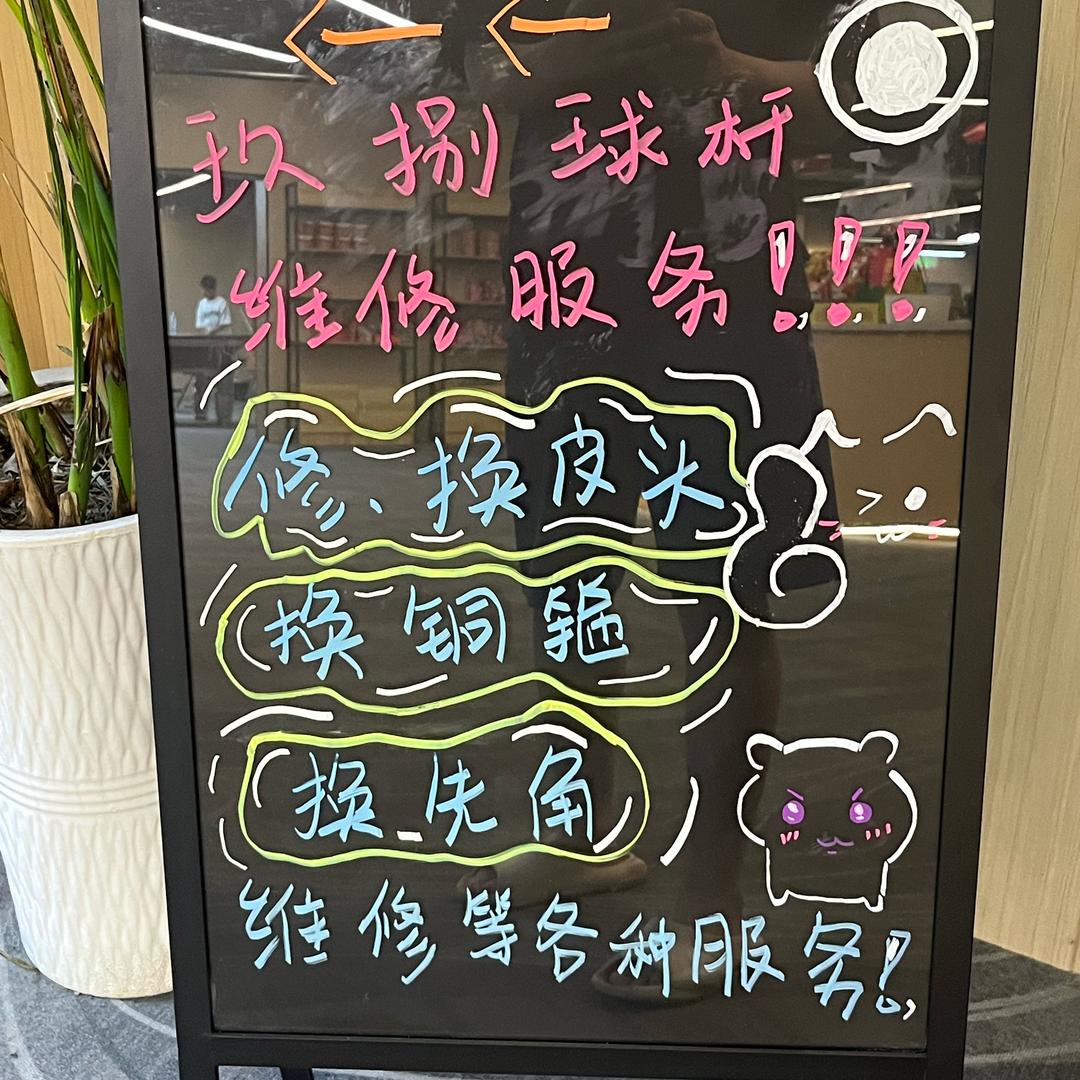 玖捌球杆
维修服务!!!
修、换皮头
换铜箍
换先角
维修等各种服务!